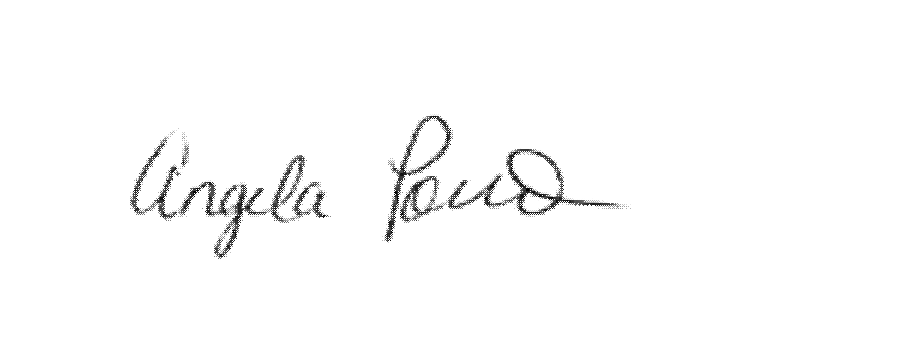 Angela Pond